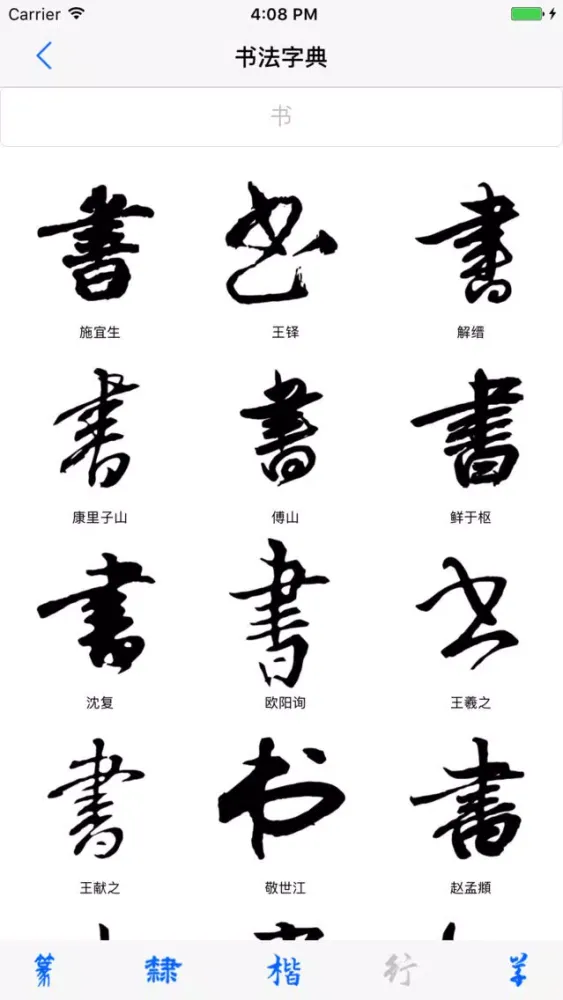 Carrier 4:08 PM
书法字典
书
書 书 書
施宜生 王铎 解缙
書 書 書
康里子山 傅山 鲜于枢
書 書 书
沈复 欧阳询 王羲之
書 书 書
王献之 敬世江 赵孟頫
篆 隸 楷 行 草